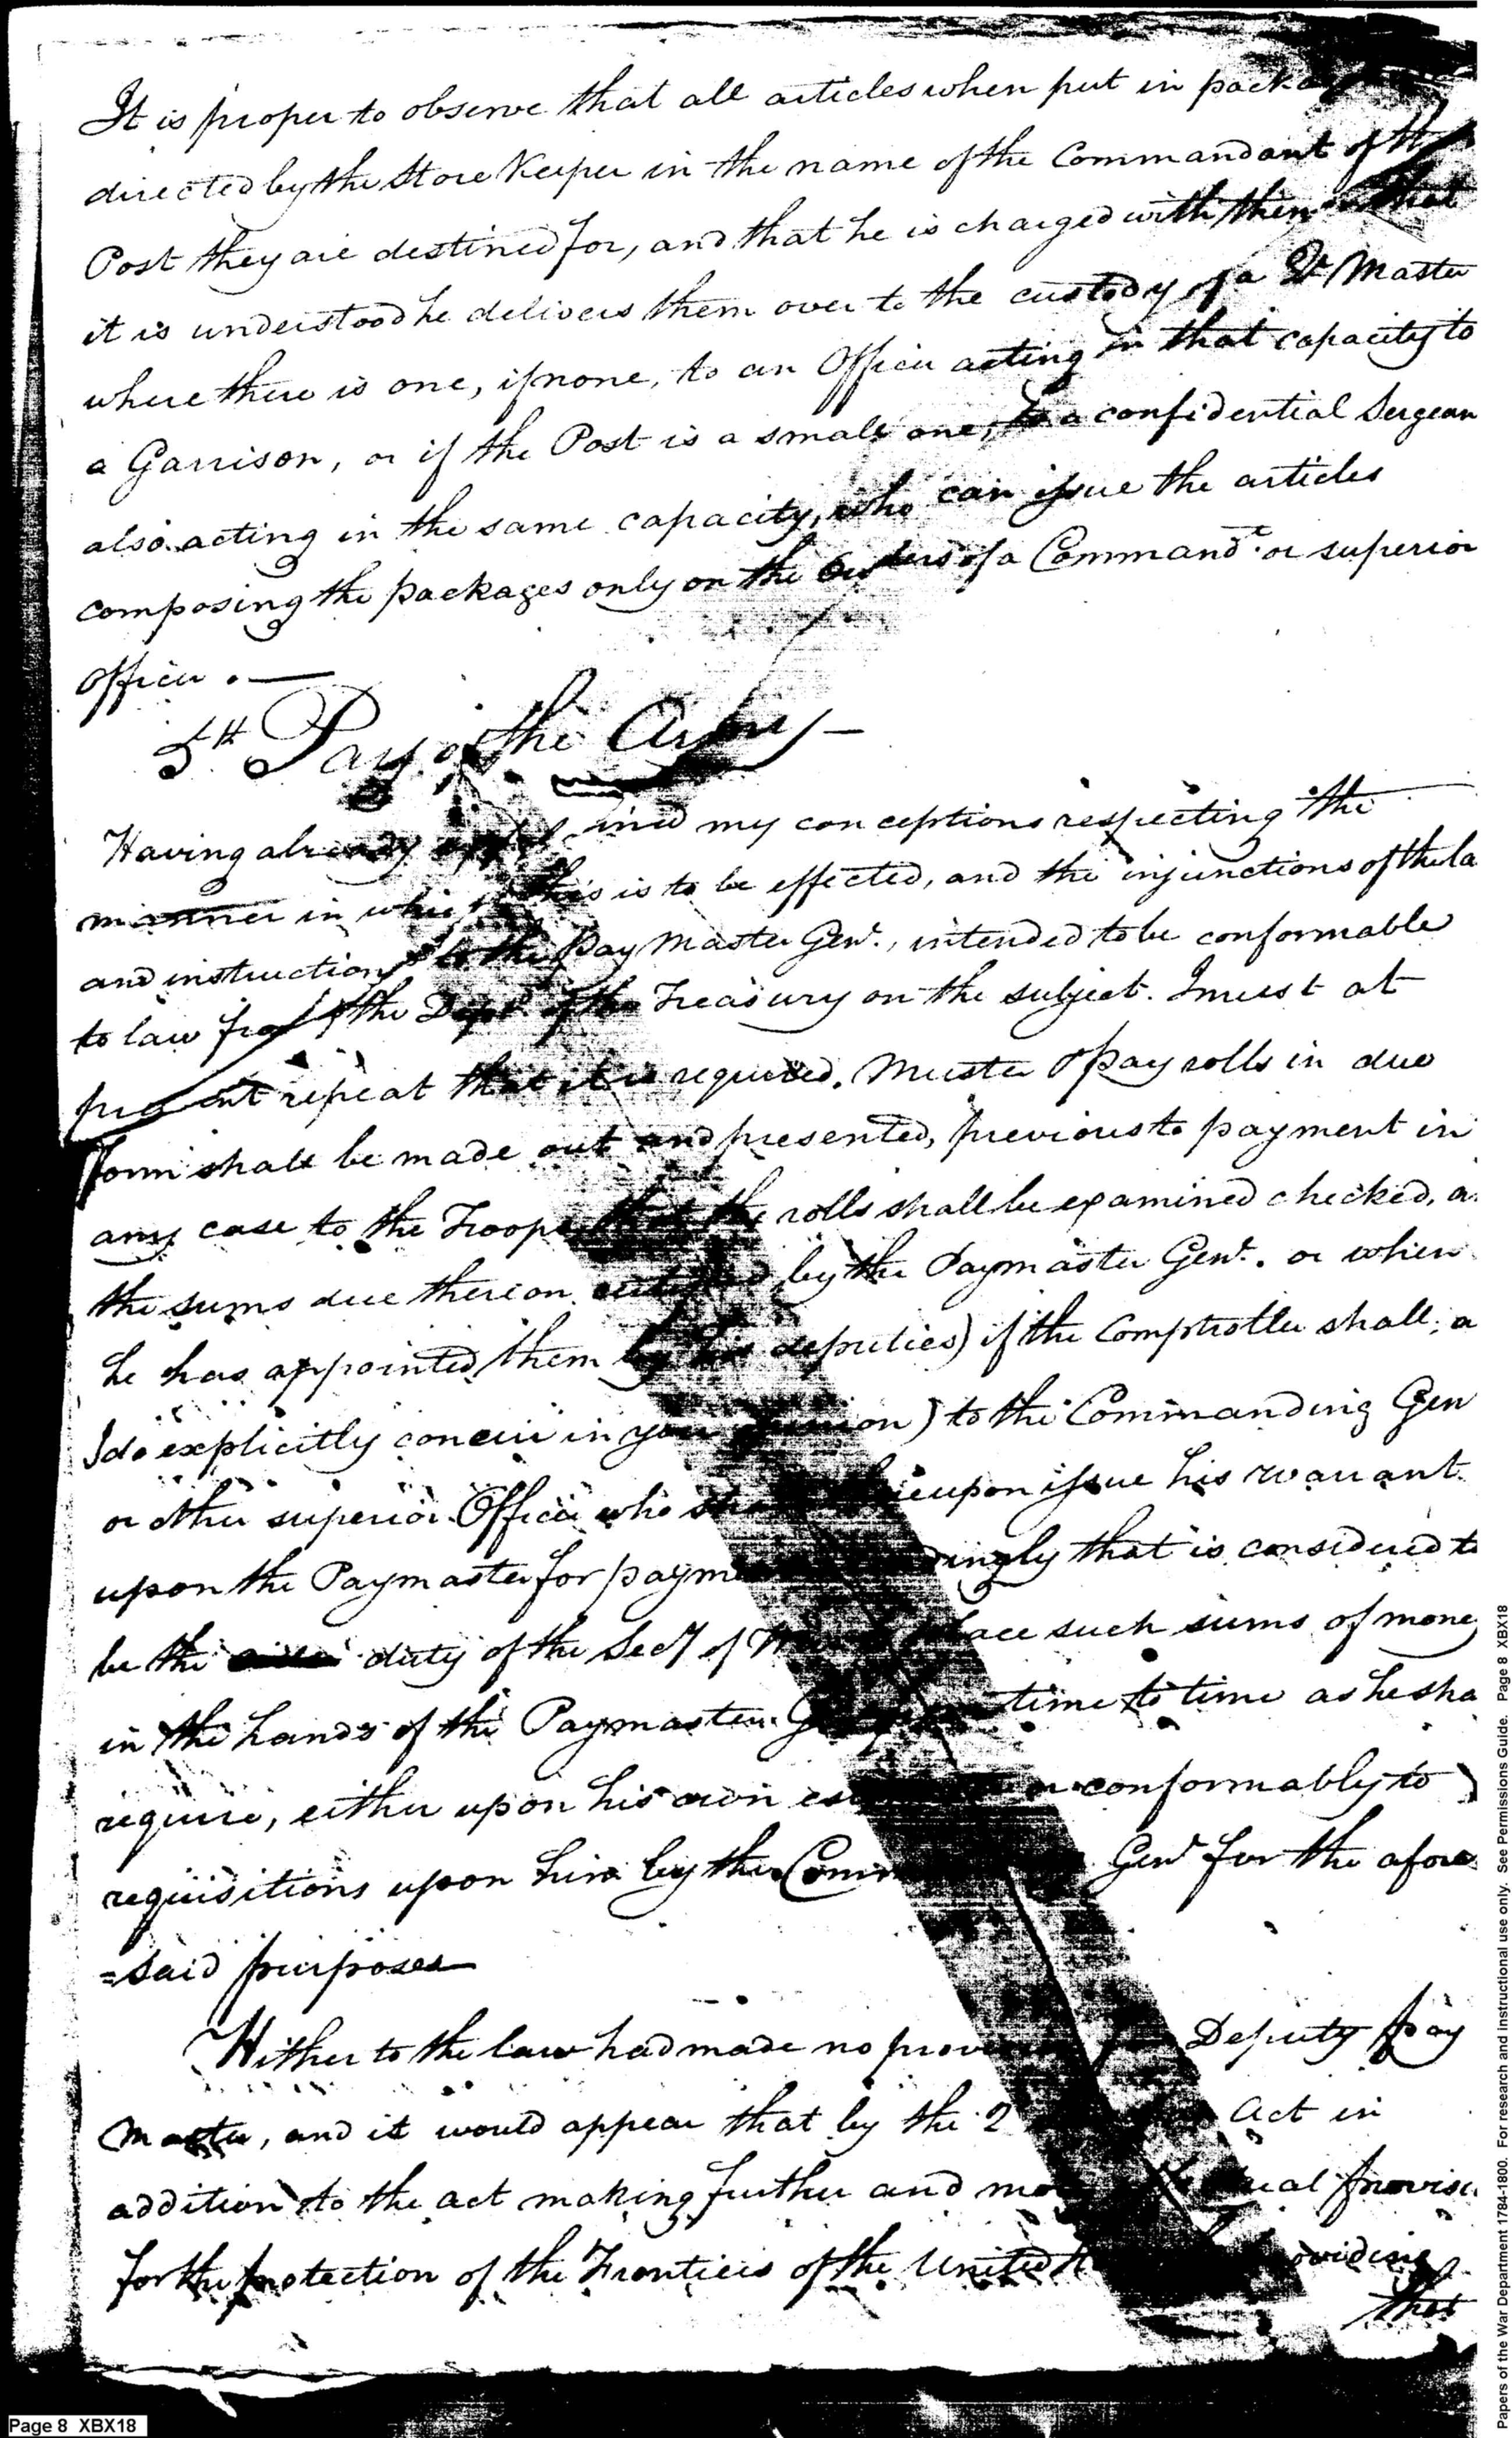 It is proper to observe that all articles when put in
directed by the Store Keeper in the name of the Commandant of
Post they are destined for, and that he is charged with them that
it is understood he delivers them over to the custody of a Qr Master
where there is one, if none, to an Officer acting in that capacity to
a Garrison, or if the Post is a small one, to a confidential Sergean
also acting in the same capacity, who can issue the articles
composing the packages only on the Orders of a Commandt. or superior
officer . —
5th Pay of the Army —
Having already my conceptions respecting the
manner in which this is to be effected, and the injunctions of the la
and instructions to the Pay Master Genl., intended to be conformable
to law from the Dept. of the Treasury on the subject. I must at
present repeat that it is required, Muster & pay rolls in due
form shall be made out and presented, previous to payment in
any case to the Troops that the rolls shall be examined checked, a
the sums due thereon by the Paymaster Genl. or when
he has appointed them by his deputies) if the Comptroller shall, a
I do explicitly concur in your ) to the Commanding Gen
or other superior Officer who issue his warrant
upon the Paymaster for that is considered to
be the duty of the Secy of such sums of mone
in the hands of the Paymaster time to time as he sha
require, either upon his own conformably to
requisitions upon him by the Genl for the afore
=said purposes
Hither to the law had made no Deputy Pay
Master, and it would appear that by the 2 Act in
addition to the act making further and provisi
for the protection of the Frontiers of the United
that
Page 8 XBX18
Papers of the War Department 1784-1800. For research and instructional use only. See Permissions Guide. Page 8 XBX18